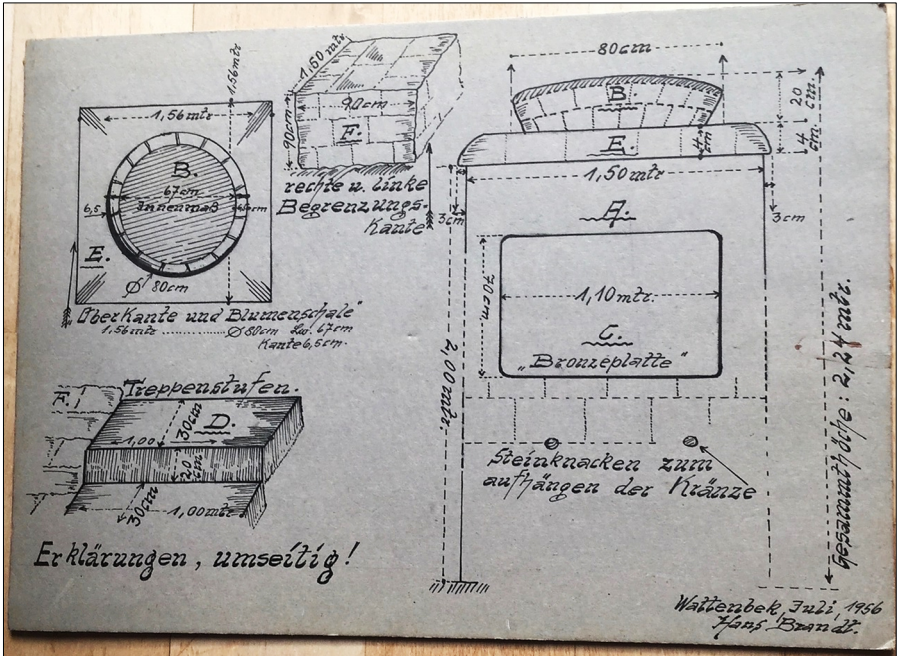 1,56 mtr
1,56 mtr
B.
67cm
Innenmaß
6,5
6,5cm
E.
Ø 80cm
"Oberkante und Blumenschale"
1,56 mtr ............ Ø 80cm Lw. 67cm
Kante 6,5cm.
1,50 mtr.
90cm
90cm
F.
rechte u. linke
Begrenzungs-
Kante
80cm
B.
20 cm.
E.
4 cm
4 cm.
1,50 mtr
3cm
3cm
A.
70cm
1,10 mtr.
C.
"Bronzeplatte"
2,00 mtr.
Gesammthöhe: 2,24 mtr.
Steinknacken zum
aufhängen der Kränze
Treppenstufen.
F.
30cm
D.
1,00
20 cm
30cm
1,00 mtr
Erklärungen, umseitig!
Wattenbek, Juli, 1956
Hans Brandt.